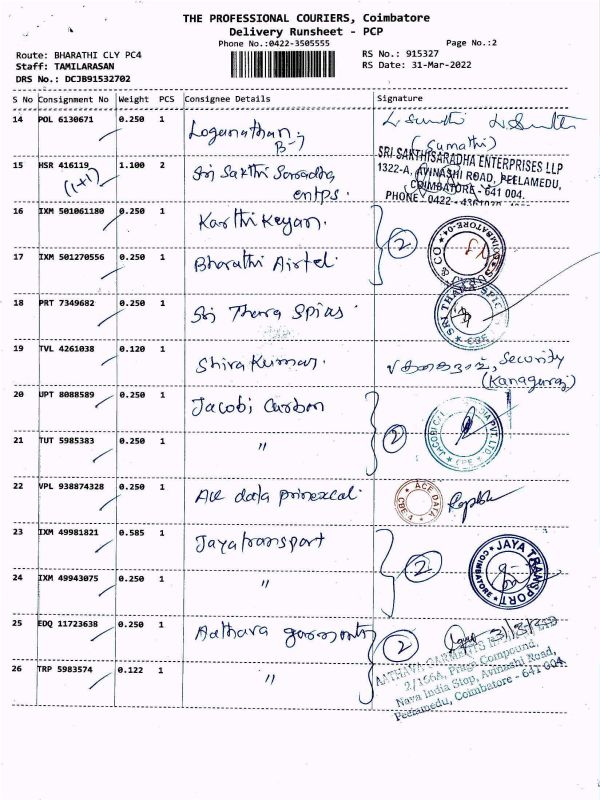 THE PROFESSIONAL COURIERS, Coimbatore
Delivery Runsheet - PCP
Phone No.:0422-3505555
Page No.:2
Route: BHARATHI CLY PC4
RS No.: 915327
Staff: TAMILARASAN
RS Date: 31-Mar-2022
DRS No.: DCJB91532702
S No Consignment No Weight PCS Consignee Details Signature
14 POL 6130671 0.250 1 Loganathan B-7
(Sumathi)
15 HSR 416119 1.100 2 Sri Sakthi Saradha
(1+1) entps.
SRI SAKTHISARADHA ENTERPRISES LLP
1322-A, AVINASHI ROAD, PEELAMEDU,
COIMBATORE - 641 004.
PHONE 0422 -
16 IXM 501061180 0.250 1 Karthi Keyan. 2
17 IXM 501270556 0.250 1 Bharathi Airtel.
& CO
COIMBATORE-04
18 PRT 7349682 0.250 1 Sri Thara Spias
SRI THARA SPIC
CBE
19 TVL 4261038 0.120 1 Shiva Kumar. Security
(Kanagaraj)
20 UPT 8088589 0.250 1 Jacobi Carbon 2
JACOBI
PVT. LTD
21 TUT 5985383 0.250 1 "
22 VPL 938874328 0.250 1 Ace data
ACE DATA
CBE-4
23 IXM 49981821 0.585 1 Jaya transport 2
JAYA TRANSPORT
COIMBATORE
24 IXM 49943075 0.250 1 "
25 EDQ 11723638 0.250 1 Aathava garments 2
26 TRP 5983574 0.122 1 "
AATHAVA GARMENTS
2/166A, Compound,
Nava India Stop, Avinashi Road,
Peelamedu, Coimbatore - 641 004